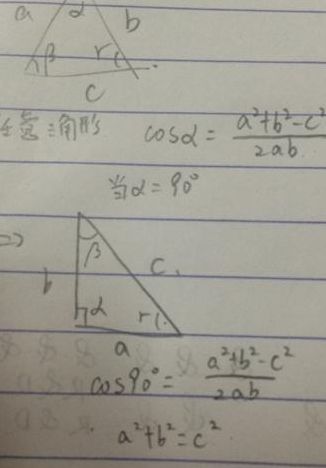 a α b
β r
c
任意三角形 cosα = a²+b²-c² / 2ab
当α=90°
=>
β
b c
α r
a
cos90° = a²+b²-c² / 2ab
a²+b²=c²